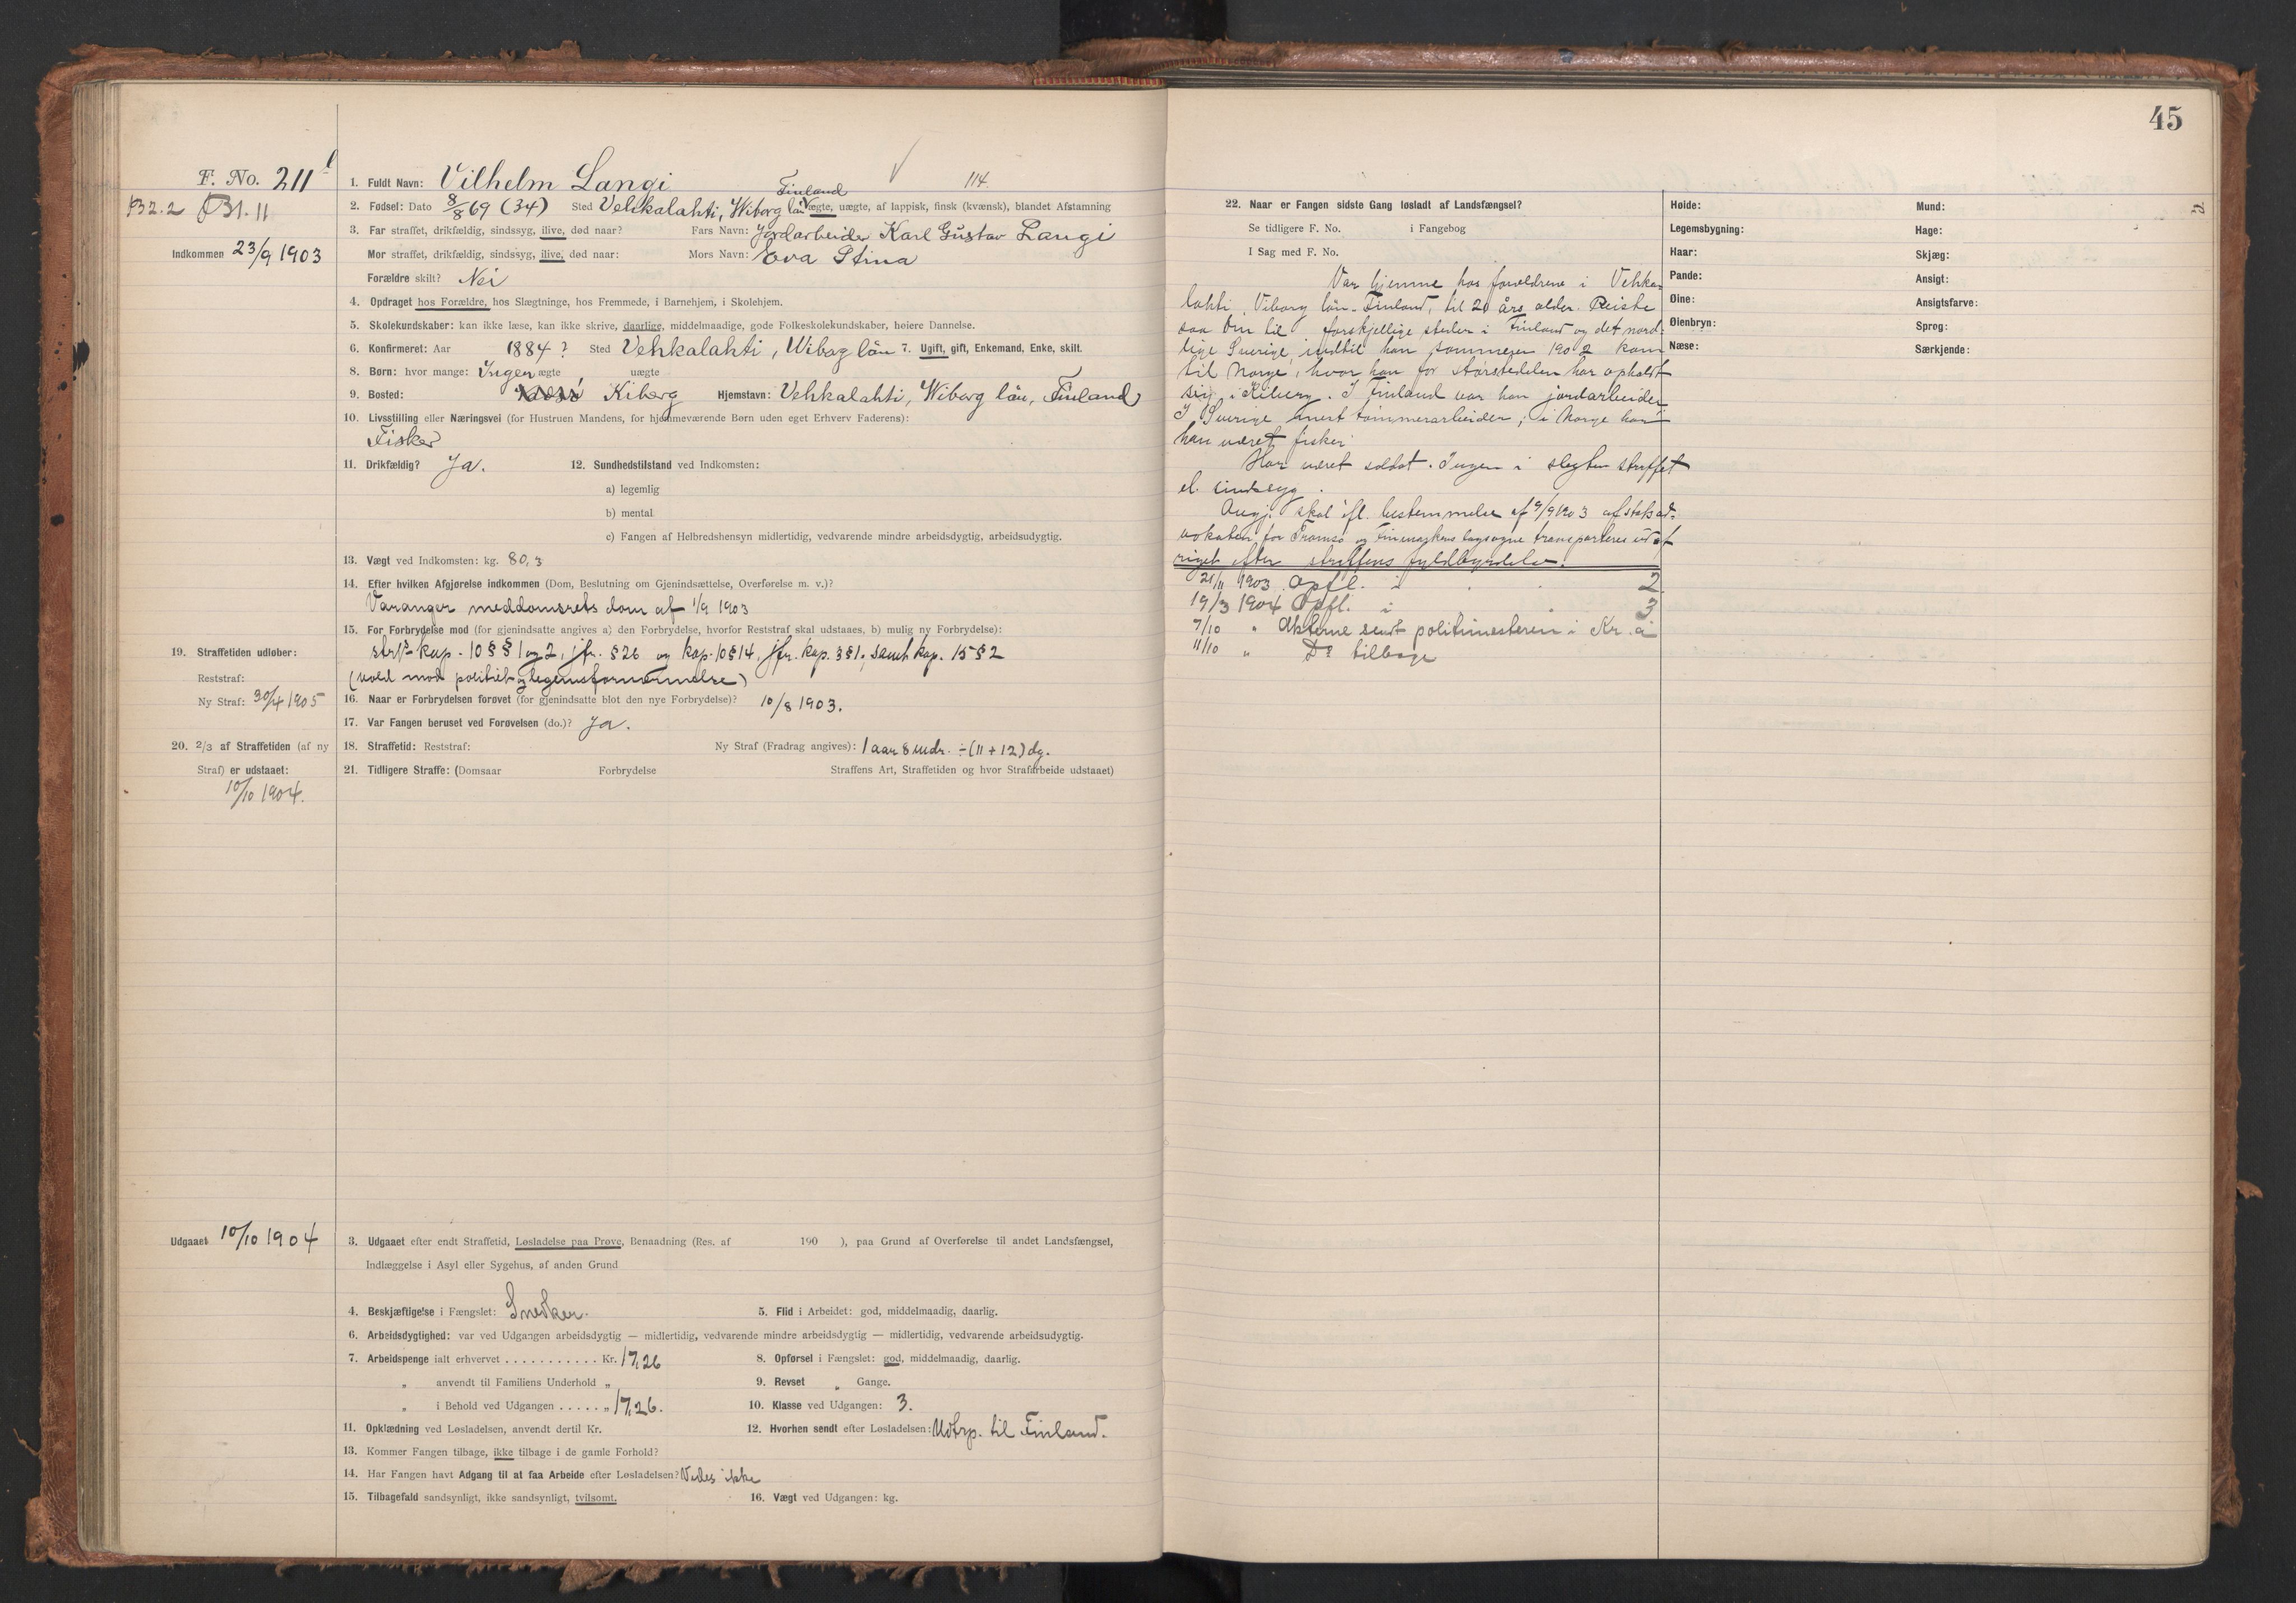 45
F. No. 211
B2.2 B1.11
Indkommen 23/9 1903
1. Fuldt Navn: Vilhelm Langi 114.
Finland
2. Fødsel: Dato 8/8 69 (34) Sted Vehkalahti, Wiborg län ægte, uægte, af lappisk, finsk (kvænsk), blandet Afstamning
3. Far straffet, drikfældig, sindssyg, ilive, død naar? Fars Navn: Jordarbeider Karl Gustav Langi
Mor straffet, drikfældig, sindssyg, ilive, død naar: Mors Navn: Eva Stina
Forældre skilt? Nei
4. Opdraget hos Forældre, hos Slægtninge, hos Fremmede, i Barnehjem, i Skolehjem.
5. Skolekundskaber: kan ikke læse, kan ikke skrive, daarlige, middelmaadige, gode Folkeskolekundskaber, høiere Dannelse.
6. Konfirmeret: Aar 1884? Sted Vehkalahti, Wibog län 7. Ugift, gift, Enkemand, Enke, skilt.
8. Børn: hvor mange: Ingen ægte uægte
9. Bosted: Kiberg Hjemstavn: Vehkalahti, Wiborg län, Finland
10. Livsstilling eller Næringsvei (for Hustruen Mandens, for hjemmeværende Børn uden eget Erhverv Faderens):
Fisker
11. Drikfældig? Ja. 12. Sundhedstilstand ved Indkomsten:
a) legemlig
b) mental
c) Fangen af Helbredshensyn midlertidig, vedvarende mindre arbeidsdygtig, arbeidsudygtig.
13. Vægt ved Indkomsten: kg. 80,3
14. Efter hvilken Afgjørelse indkommen (Dom, Beslutning om Gjenindsættelse, Overførelse m. v.)?
Varanger meddomsrets dom af 1/9 1903
15. For Forbrydelse mod (for gjenindsatte angives a) den Forbrydelse, hvorfor Reststraf skal udstaaes, b) mulig ny Forbrydelse):
kap. 10 §§ 1 og 2, jfr. § 26 og kap. 10 § 14, jfr. kap. 3 § 1, samt kap. 15 § 2
(vold mod politiet og legemsfornærmelse)
19. Straffetiden udløber:
Reststraf:
Ny Straf: 30/4 1905
16. Naar er Forbrydelsen forøvet (for gjenindsatte blot den nye Forbrydelse)? 10/8 1903.
17. Var Fangen beruset ved Forøvelsen (do.)? Ja.
20. 2/3 af Straffetiden (af ny
Straf) er udstaaet:
10/10 1904.
18. Straffetid: Reststraf: Ny Straf (Fradrag angives): 1 aar 8 mdr. ÷ (11 + 12) dg.
21. Tidligere Straffe: (Domsaar Forbrydelse Straffens Art, Straffetiden og hvor Strafarbeide udstaaet)
Udgaaet 10/10 1904
3. Udgaaet efter endt Straffetid, Løsladelse paa Prøve, Benaadning (Res. af 190 ), paa Grund af Overførelse til andet Landsfængsel,
Indlæggelse i Asyl eller Sygehus, af anden Grund
4. Beskjæftigelse i Fængslet: Snedker. 5. Flid i Arbeidet: god, middelmaadig, daarlig.
6. Arbeidsdygtighed: var ved Udgangen arbeidsdygtig — midlertidig, vedvarende mindre arbeidsdygtig — midlertidig, vedvarende arbeidsudygtig.
7. Arbeidspenge ialt erhvervet . . . . . . . . . . . Kr. 17,26 8. Opførsel i Fængslet: god, middelmaadig, daarlig.
„ anvendt til Familiens Underhold „ 9. Revset „ Gange.
„ i Behold ved Udgangen . . . . . „ 17,26. 10. Klasse ved Udgangen: 3.
11. Opklædning ved Løsladelsen, anvendt dertil Kr. 12. Hvorhen sendt efter Løsladelsen: Udtrp. til Finland.
13. Kommer Fangen tilbage, ikke tilbage i de gamle Forhold?
14. Har Fangen havt Adgang til at faa Arbeide efter Løsladelsen? Vides ikke
15. Tilbagefald sandsynligt, ikke sandsynligt, tvilsomt. 16. Vægt ved Udgangen: kg.
22. Naar er Fangen sidste Gang løsladt af Landsfængsel?
Se tidligere F. No. i Fangebog
I Sag med F. No.
Var hjemme hos forældrene i Vehka-
lahti, Viborg län, Finland, til 20 års alder. Reiste
saa om til forskjellige steder i Finland og det nord-
lige Sverige, indtil han sommeren 1902 kom
til Norge, hvor han for størstedelen har opholdt
sig i Kiberg. I Finland var han jordarbeider
I Sverige mest tømmerarbeider; i Norge har
han været fisker.
Har været soldat. Ingen i slegten straffet
el. sindssyg.
Angj. skal ifl. bestemmelse af 9/9 1903 af statsad-
vokaten for Tromsø og Finmarkens lagsogne transporteres ud af
riget efter straffens fyldbyrdelse.
21/11 1903 Opfl. i 2
19/3 1904 Opfl. i 3
7/10 „ Akterne sendt politimesteren i Kr.a
11/10 „ Do tilbage
Høide:
Legemsbygning:
Haar:
Pande:
Øine:
Øienbryn:
Næse:
Mund:
Hage:
Skjæg:
Ansigt:
Ansigtsfarve:
Sprog:
Særkjende: